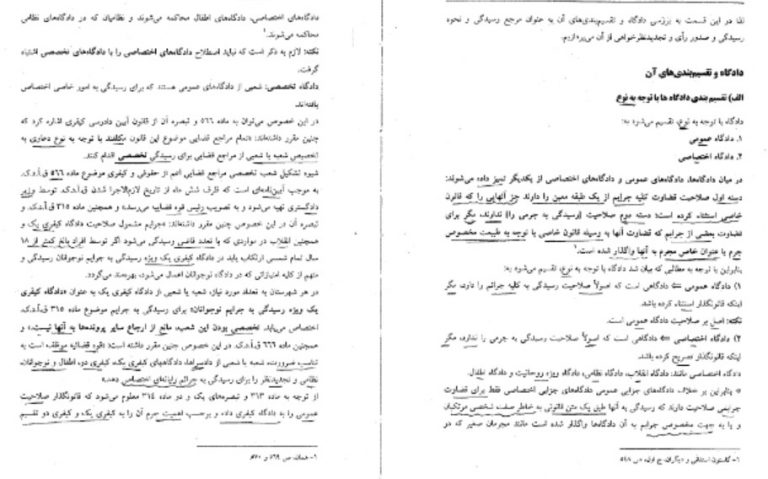 لذا در این قسمت به بررسی دادگاه و تقسیم‌بندی‌های آن به عنوان مرجع رسیدگی و نحوه
رسیدگی و صدور رأی و تجدیدنظرخواهی از آن می‌پردازیم.
دادگاه و تقسیم‌بندی‌های آن
الف) تقسیم‌بندی دادگاه ها با توجه به نوع
دادگاه با توجه به نوع، تقسیم می‌شود به:
۱. دادگاه عمومی
۲. دادگاه اختصاصی
در میان دادگاه‌ها، دادگاه‌های عمومی و دادگاه‌های اختصاصی از یکدیگر تمیز داده می‌شوند:
دسته اول صلاحیت قضاوت کلیه جرایم از یک طبقه معین را دارند جز آنهایی را که قانون
خاصی استثناء کرده است؛ دسته دوم صلاحیت [رسیدگی به جرمی را] ندارند، مگر برای
قضاوت بعضی از جرایم که قضاوت آنها به وسیله قانون خاصی با توجه به طبیعت مخصوص
جرم یا عنوان خاص مجرم به آنها واگذار شده است.۱
بنابراین با توجه به مطالبی که بیان شد دادگاه با توجه به نوع، تقسیم می‌شود به:
۱) دادگاه عمومی ⇐ دادگاهی است که اصولاً صلاحیت رسیدگی به کلیه جرائم را دارد، مگر
اینکه قانونگذار استثناء کرده باشد.
نکته: اصل بر صلاحیت دادگاه عمومی است.
۲) دادگاه اختصاصی ⇐ دادگاهی است که اصولاً صلاحیت رسیدگی به جرمی را ندارد، مگر
اینکه قانونگذار تصریح کرده باشد.
دادگاه اختصاصی مانند: دادگاه انقلاب، دادگاه نظامی، دادگاه ویژه روحانیت و دادگاه اطفال.
* بنابراین بر خلاف دادگاه‌های جزایی عمومی دادگاه‌های جزایی اختصاصی فقط برای قضاوت
جرایمی صلاحیت دارند که رسیدگی به آنها طبق یک متن قانونی به خاطر صفت شخصی مرتکبان
و یا به جهت مخصوص جرایم به آن دادگاه‌ها واگذار شده است مانند مجرمان صغیر که در
۱- گاستون استفانی و دیگران، ج اول، ص ۵۶۸
دادگاه‌های اختصاصی، دادگاه‌های اطفال محاکمه می‌شوند و نظامیان که در دادگاه‌های نظامی
محاکمه می‌شوند.۱
نکته: لازم به ذکر است که نباید اصطلاح دادگاه‌های اختصاصی را با دادگاه‌های تخصصی اشتباه
گرفت.
دادگاه تخصصی: شعبی از دادگاه‌های عمومی هستند که برای رسیدگی به امور خاصی اختصاص
یافته‌اند.
در این خصوص می‌توان به ماده ۵۶۶ و تبصره آن از قانون آیین دادرسی کیفری اشاره کرد که
چنین مقرر داشته‌اند: «تمام مراجع قضایی موضوع این قانون مکلفند با توجه به نوع دعاوی به
تخصیص شعبه یا شعبی از مراجع قضایی برای رسیدگی تخصصی اقدام کنند.
شیوه تشکیل شعب تخصصی مراجع قضایی اعم از حقوقی و کیفری موضوع ماده ۵۶۶ ق.آ.د.ک.
به موجب آیین‌نامه‌ای است که ظرف شش ماه از تاریخ لازم‌الاجرا شدن ق.آ.د.ک. توسط وزیر
دادگستری تهیه می‌شود و به تصویب رئیس قوه قضاییه می‌رسد.» و همچنین ماده ۳۱۵ ق.آ.د.ک و
تبصره آن در این خصوص چنین مقرر داشته‌اند: «جرایم مشمول صلاحیت دادگاه کیفری یک و
همچنین انقلاب در مواردی که با تعدد قاضی رسیدگی می‌شود اگر توسط افراد بالغ کمتر از ۱۸
سال تمام شمسی ارتکاب یابد در دادگاه کیفری یک ویژه رسیدگی به جرایم نوجوانان رسیدگی و
متهم از کلیه امتیازاتی که در دادگاه نوجوانان اعمال می‌شود، بهره‌مند می‌گردد.
در هر شهرستان به تعداد مورد نیاز، شعبه یا شعبی از دادگاه کیفری یک به عنوان «دادگاه کیفری
یک ویژه رسیدگی به جرایم نوجوانان» برای رسیدگی به جرایم موضوع ماده ۳۱۵ ق.آ.د.ک.
اختصاص می‌یابد. تخصصی بودن این شعب، مانع از ارجاع سایر پرونده‌ها به آنها نیست.» و
ماده ۶۶۶ ق.آ.د.ک. در این خصوص جنین مقرر داشته است: «قوه قضائیه موظف است به
تناسب ضرورت، شعبه یا شعبی از دادسراها، دادگاههای کیفری یک، کیفری دو، اطفال و نوجوانان،
نظامی و تجدیدنظر را برای رسیدگی به جرائم رایانه‌ای اختصاص دهد.»
از توجه به ماده ۳۱۳ و تبصره‌های یک و دو ماده ۳۱۴ معلوم می‌شود که قانونگذار صلاحیت
عمومی را به دادگاه کیفری داده و برحسب اهمیت جرم آن را به کیفری یک و کیفری دو تقسیم
۱- همان، ص ۵۶۹ و ۵۷۰.